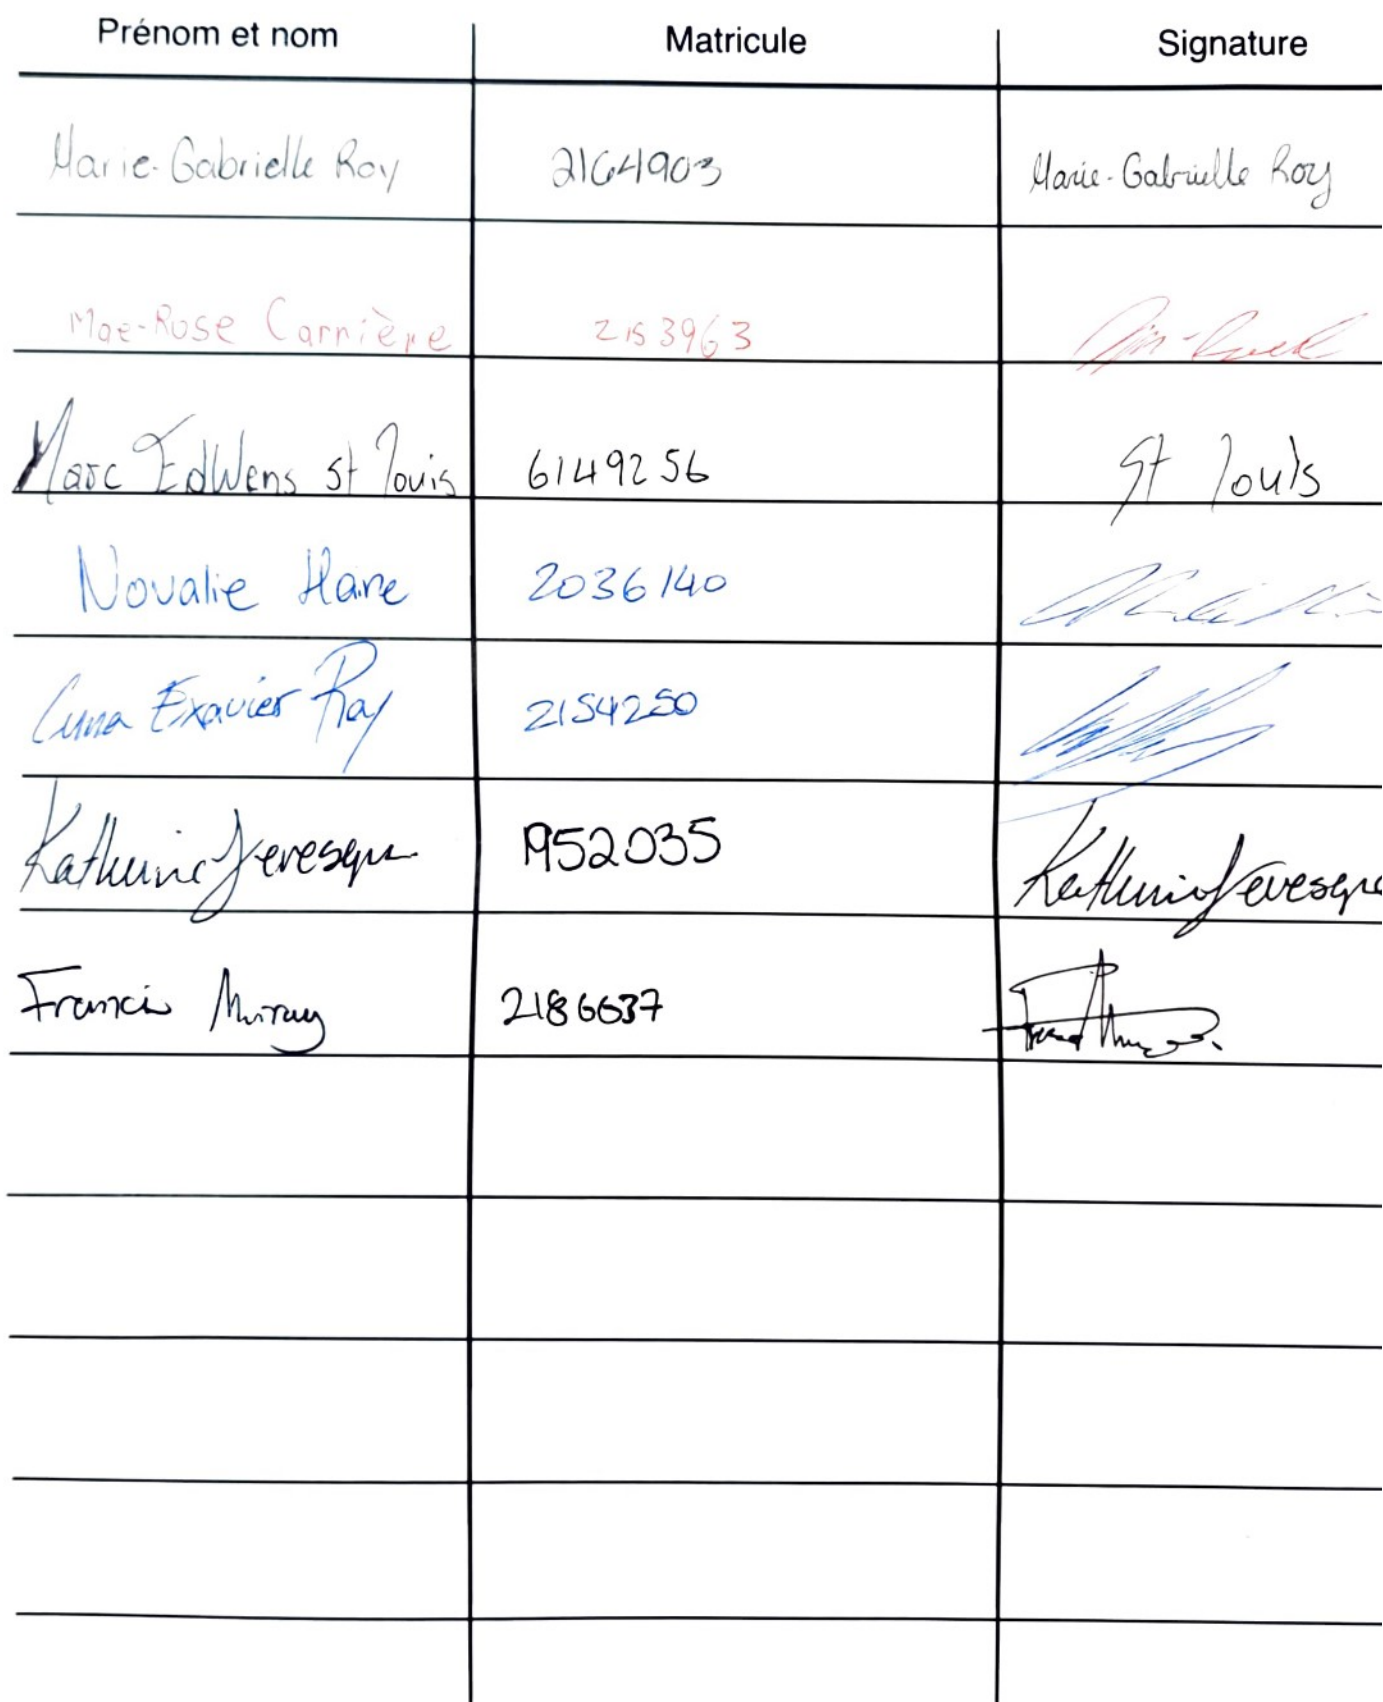 Prénom et nom Matricule Signature
Marie-Gabrielle Roy 2164903 Marie-Gabrielle Roy
Mae-Rose Carrière 2153963
Marc Edwens st louis 6149256 St louis
Novalie Haine 2036140
Exavier Roy 2154250
Katherine Levesque 1952035 Katherine Levesque
Francis Murray 2186637